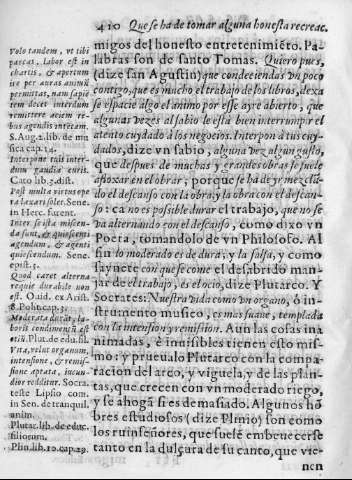 410 Que se ha de tomar alguna honesta recreac.
migos del honesto entretenimiẽto. Pa-
labras son de santo Tomas. Quiero pues,
(dize san Agustin) que condeciendas vn poco
contigo, que es mucho el trabajo de los libros, dexa
se espacie algo el animo por esse ayre abierto, que
algunas vezes al sabio le esta bien interrumpir el
atento cuydado à los negocios. Interpon à tus cuy-
dados, dize vn sabio, alguna vez algun gusto,
que despues de muchas y grandes obras se suele
afloxar en el obrar; porque se ha de yr mezclã-
do el descanso con la obra, y la obra con el descan-
so: ca no es posible durar el trabajo, que no se
va alternando con el descanso, como dixo vn
Poeta, tomandolo de vn Philosofo. Al
fin lo moderado es de dura, y la salsa, y como
saynete con que se come el desabrido man-
jar de el trabajo, es el ocio, dize Plutarco. Y
Socrates: Nuestra vida como vn organo, ò in-
strumento musico, es mas suaue, templada
con la intension y remission. Aun las cosas ina
nimadas, è inuisibles tienen esto mis-
mo: y prueualo Plutarco con la compa-
racion del arco, y viguela, y de las plan-
tas, que crecen con vn moderado riego,
y se ahogã si es demasiado. Algunos hõ
bres estudiosos (dize Plinio) son como
los ruinseñores, que suelẽ embeuecerse
tanto en la dulçura de su canto, que vie-
nen
Volo tandem, vt tibi
parcas. Labor est in
chartis, & apertum
ire per auras animũ
permittas, nam sapiẽ
tem decet interdum
remittere aciem re-
bus agendis intẽtam.
S. Aug. 2. lib. de mu
sica cap. 14.
Interpone tuis inter-
dum gaudia curis.
Cato lib. 3. dist.
Post multa virtus ope
ra laxari solet. Sene.
in Herc. furent.
Inter se ista miscen-
da sunt, & quiescenti
agendum, & agenti
quiescendum. Senec.
epist. 3.
Quod caret alterna
requie durabile non
est. Ouid. ex Arist.
8. Polit. cap. 3.
Moderata durãt, la-
boris condimentũ est
otiũ. Plut. de edu. fil.
Vita, velut organum,
intensione, & remis-
sione aptata, iucun-
dior redditur. Socra.
teste Lipsio com.
in Sen. de tranquil.
anim.
Plutar. lib. de educ.
filiorum.
Plin. lib. 10. cap. 29.